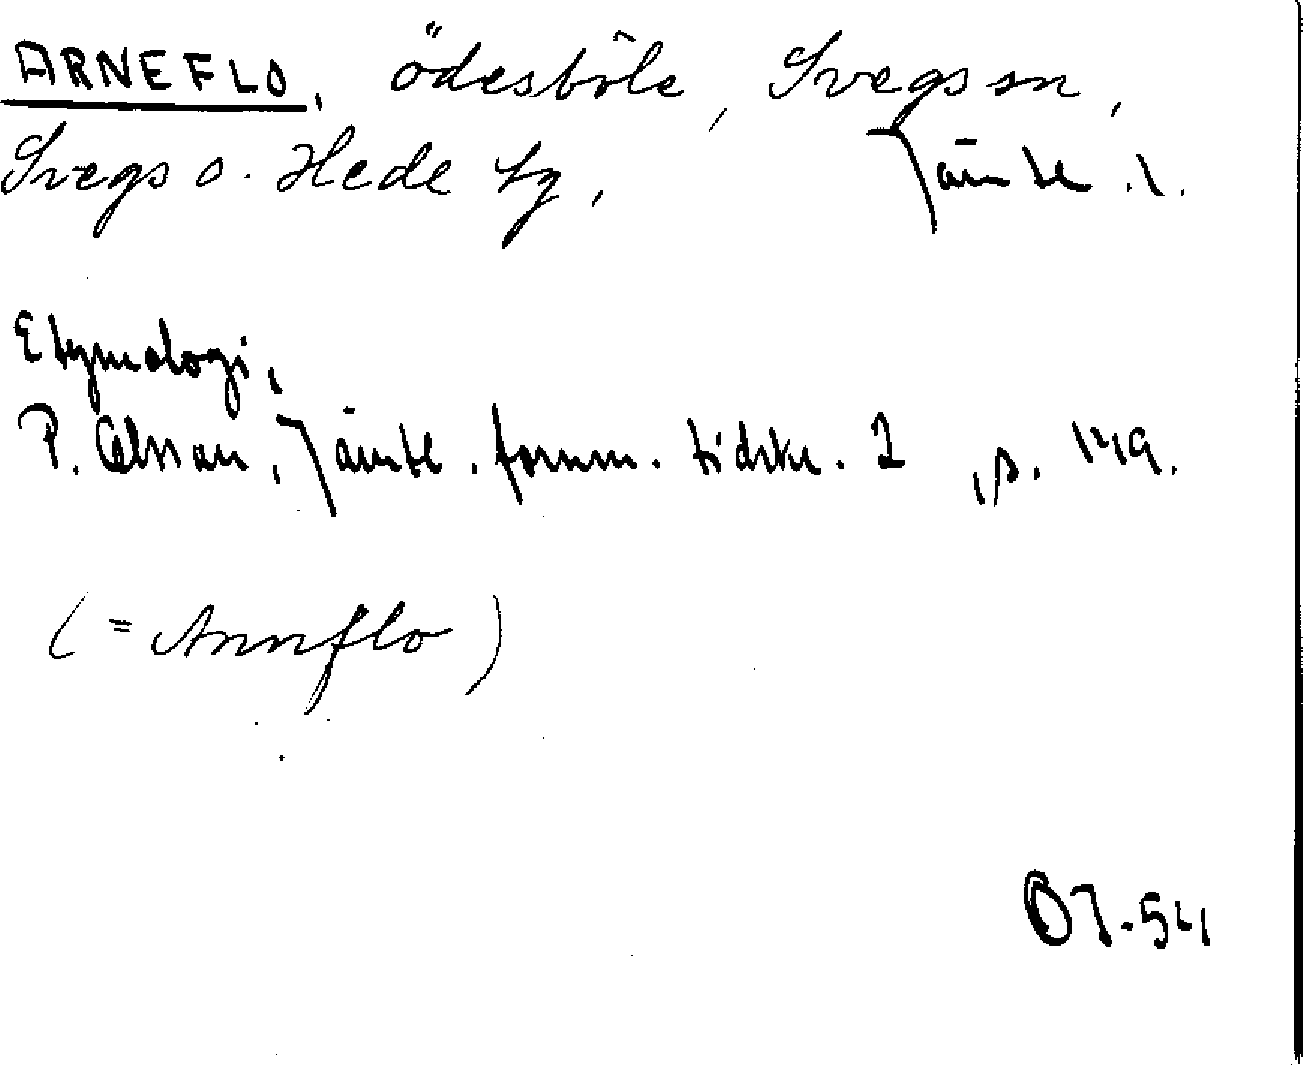 ARNEFLO, ödesböle, Svegs sn,
Svegs o. Hede tg, Jämtl. l.
Etymologi,
P. Olsson, Jämtl. fornm. tidskr. 2, s. 149.
(= Annflo)
OJ-54